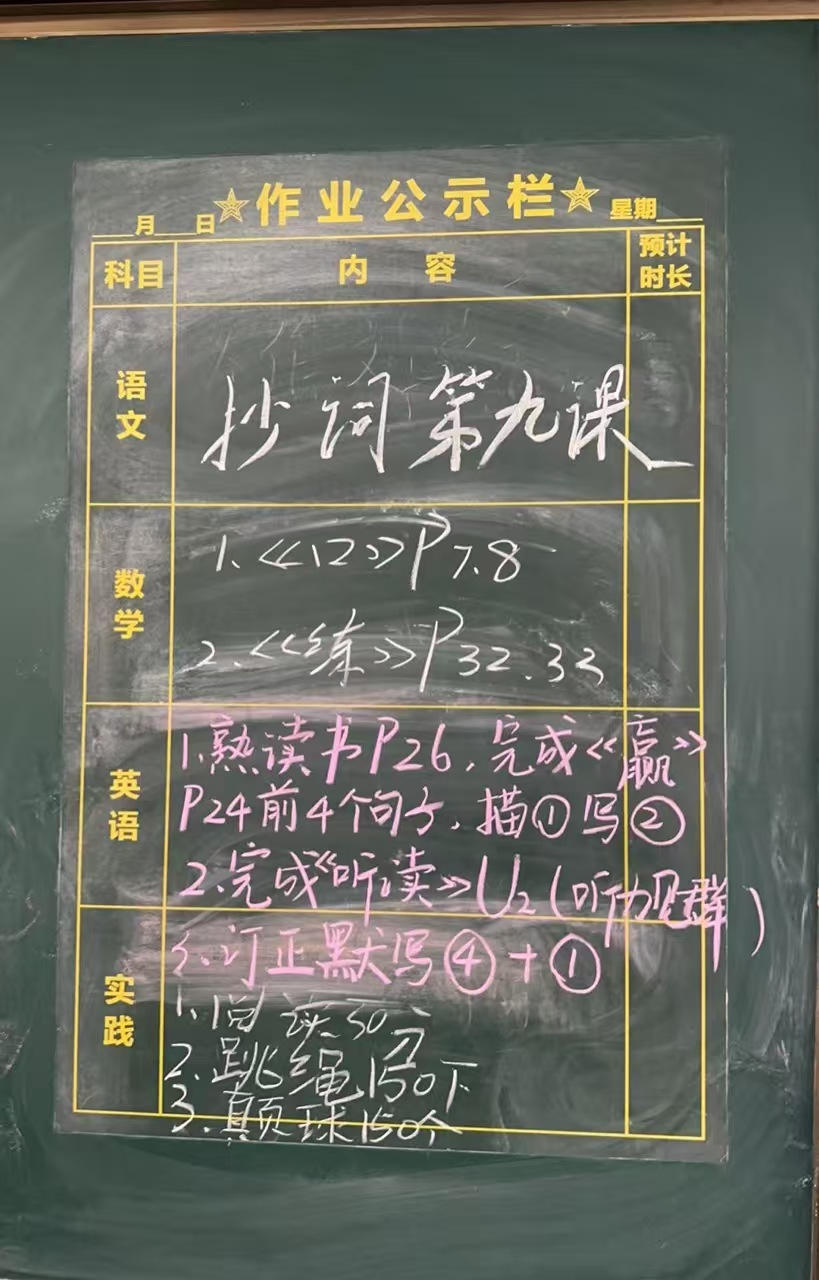 ___月___日 ★作业公示栏★ 星期___
科目 内 容 预计时长
语文
抄词 第九课
数学
1.《12》P7.8
2.《练》P32.33
英语
1.熟读书P26，完成《赢》
P24前4个句子，描①写②
2.完成《听读》U2(听力见群)
3.订正默写④+①
实践
1.阅读30分
2.跳绳150下
3.颠球150个